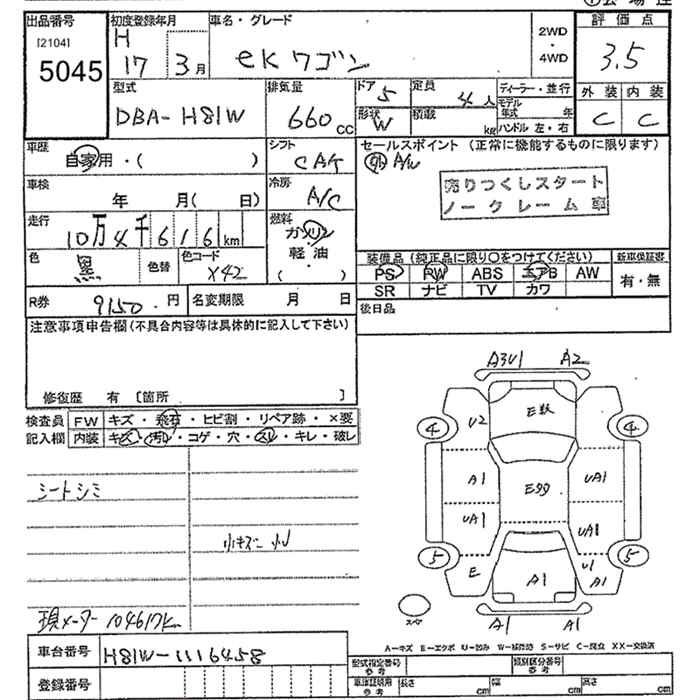 出品番号 初度登録年月 車名・グレード 評価点
[2104] H 2WD
5045 17 3月 eK ワゴン ・ 3.5
4WD
型式 排気量 ドア 5 定員 4人 ディーラー・並行 外装 内装
DBA-H81W 660cc 形状 W 積載 kg モデル年式 年 C C
ハンドル 左・右
車歴 シフト セールスポイント (正常に機能するものに限ります)
自家用・( ) CAK 外 A/W
車検 冷房 売りつくしスタート
年 月( 日) A/C ノークレーム車
走行 燃料
10万4千616km ガソリン
色 黒 色替 色コード X42 軽油
( )
装備品 (純正品に限り○をつけてください) 新車保証書
PS PW ABS エアB AW 有・無
SR ナビ TV カワ
R券 9150.円 名変期限 月 日 後日品
注意事項申告欄(不具合内容等は具体的に記入して下さい)
修復歴 有 [箇所 ]
検査員 FW キズ・飛石・ヒビ割・リペア跡・×要
記入欄 内装 キズ・汚れ・コゲ・穴・スレ・キレ・破レ
シートシミ
小キズ 小U
現メーター 104617K
A3U1 A2
E数
④ U2 ④
A1 E多 UA1
UA1 UA1
⑤ E A1 U1 A1 ⑤
スペア A1 A1
A-キズ E-エクボ U-凹み W-補修跡 S-サビ C-腐食 XX-交換済
車台番号 H81W-1116458 型式指定番号 参考 類別区分番号 参考
登録番号 車検証明用 参考 長さ cm 幅 cm 高さ cm